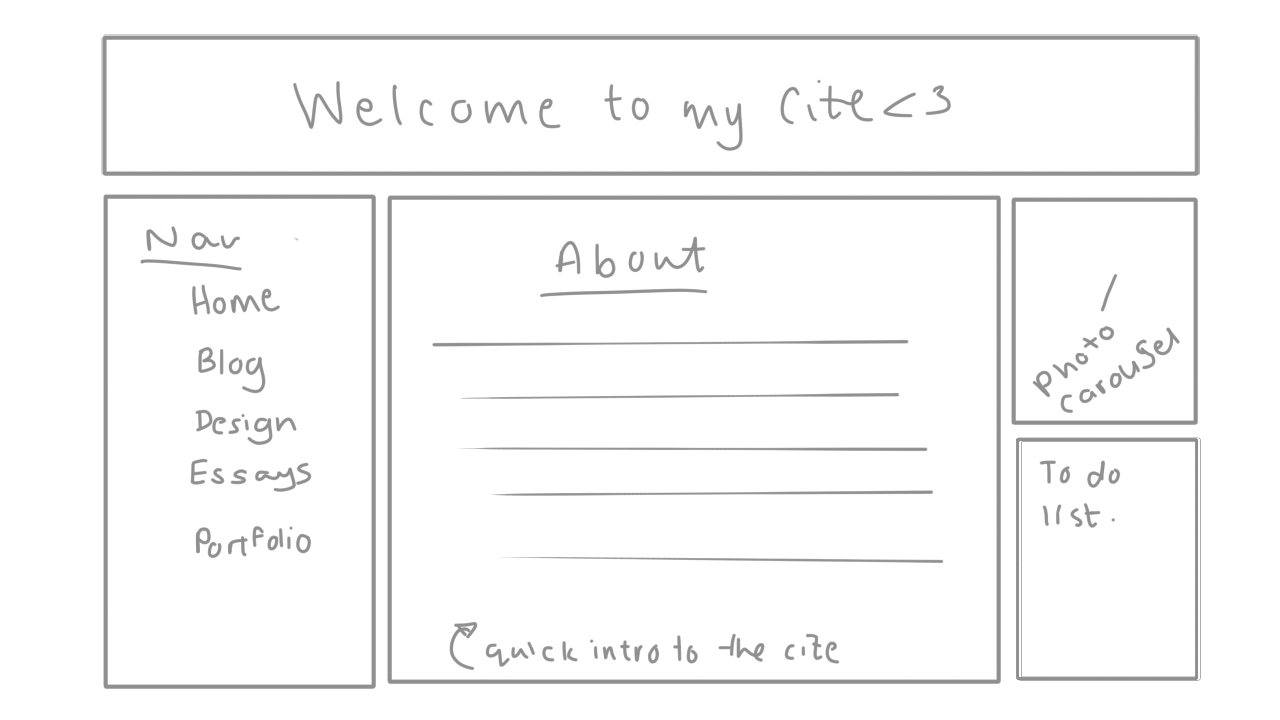 Welcome to my cite<3
Nav
Home
Blog
Design
Essays
Portfolio
About
quick intro to the cite
photo
carousel
To do
list.